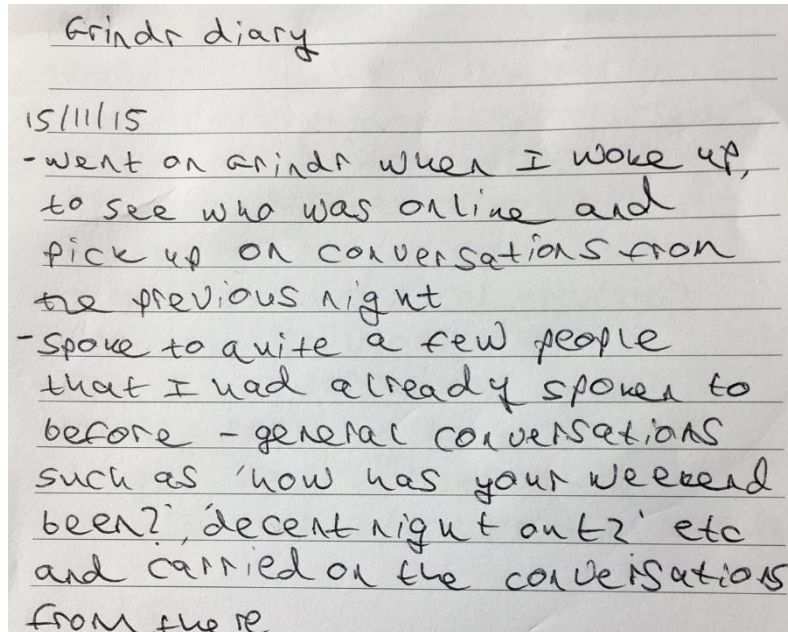 Grindr diary
15/11/15
- went on Grindr when I woke up,
to see who was online and
pick up on conversations from
the previous night
- spoke to quite a few people
that I had already spoken to
before - general conversations
such as 'how has your weekend
been?', 'decent night out?' etc
and carried on the conversations
from there